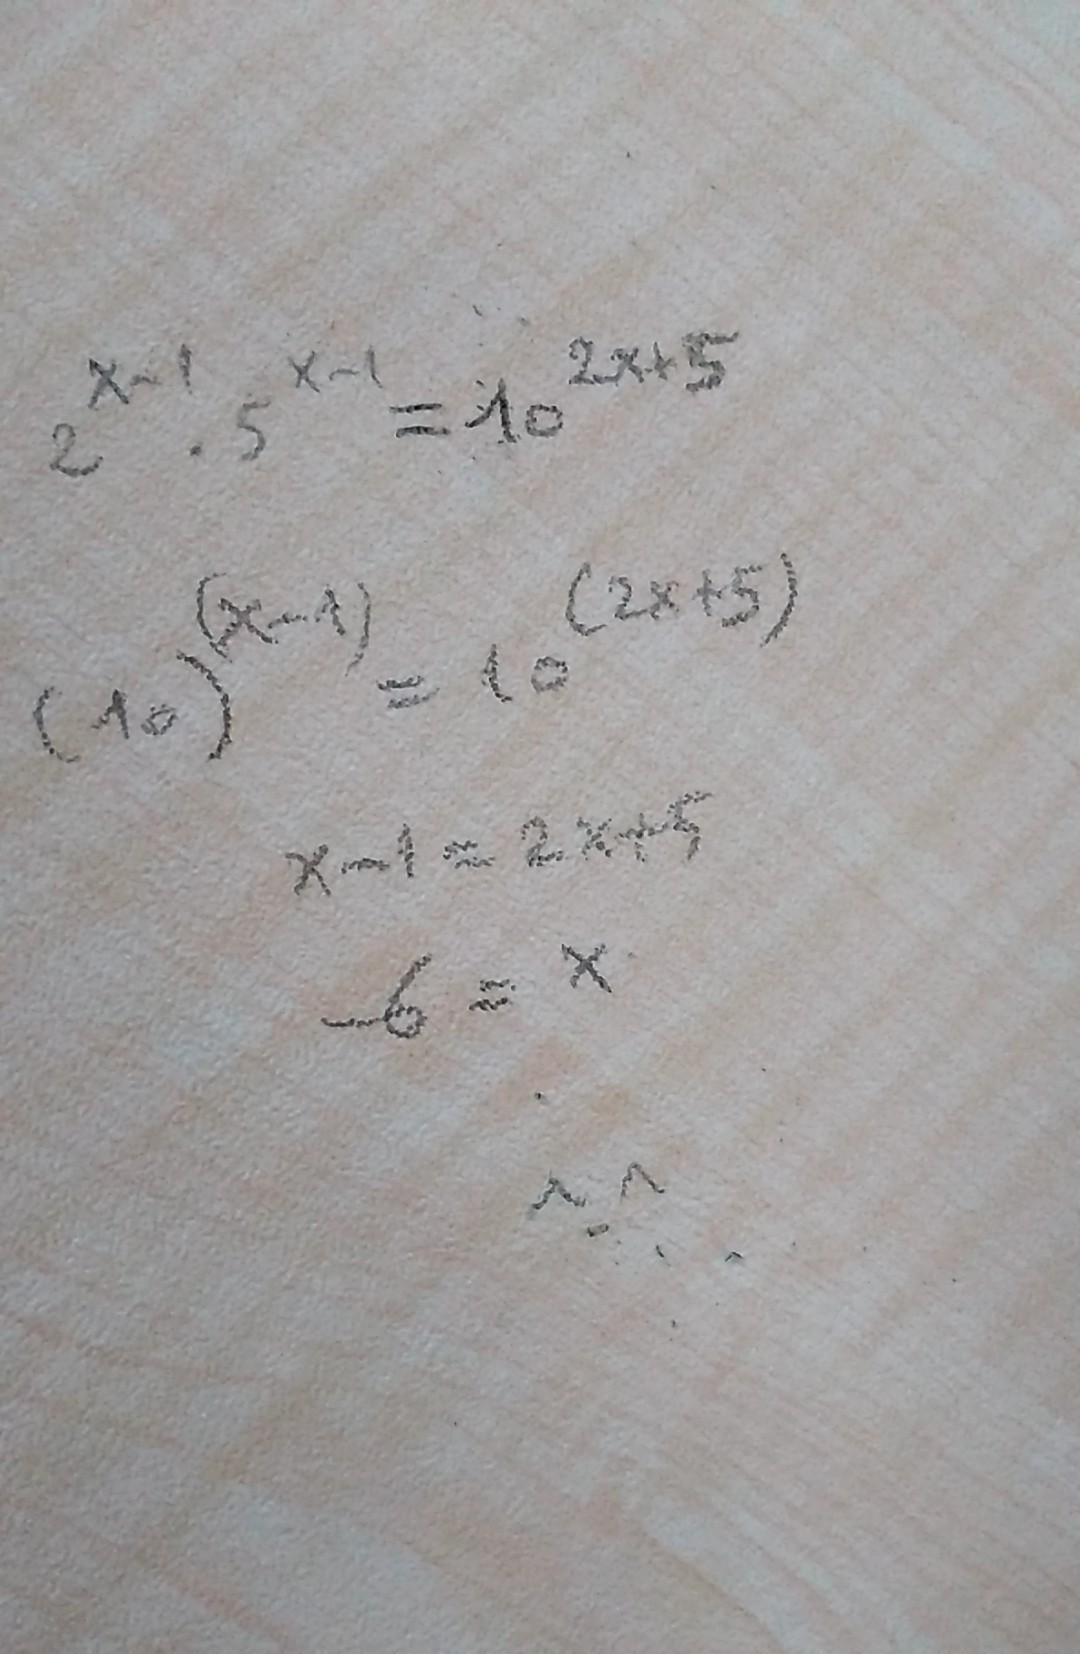 2^{x-1} . 5^{x-1} = 10^{2x+5}
(10)^{(x-1)} = 10^{(2x+5)}
x-1 = 2x+5
-6 = x
^_^